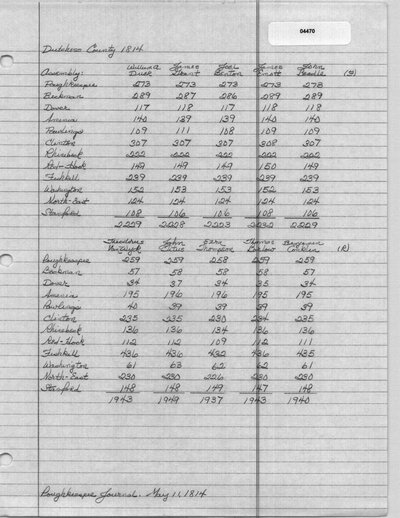 04470
Dutchess County 1814
William A James Joel James John
Assembly: Duer Grant Benton Emott Beadle (F)
Poughkeepsie 273 273 273 273 273
Beekman 289 287 286 289 289
Dover 117 118 117 118 118
Amenia 140 139 139 140 140
Pawlings 109 111 108 109 109
Clinton 307 307 307 308 307
Rhinebeck 222 222 222 222 222
Red-Hook 149 149 149 150 149
Fishkill 239 239 239 239 239
Washington 152 153 153 152 153
North-East 124 124 124 124 124
Stanford 108 106 106 108 106
2229 2228 2223 2232 2229
Theodorus John Ezra Thomas Benjamin
Thompson Barlow (R)
Poughkeepsie 259 259 258 259 259
Beekman 57 58 58 58 57
Dover 34 37 34 35 34
Amenia 195 196 196 195 195
Pawlings 40 39 39 39 39
Clinton 235 235 230 234 235
Rhinebeck 136 136 134 136 136
Red-Hook 112 112 109 112 111
Fishkill 436 436 432 436 435
Washington 61 63 62 62 61
North-East 230 230 226 230 230
Stanford 148 148 149 147 148
1943 1949 1937 1943 1940
Poughkeepsie Journal. May 11, 1814